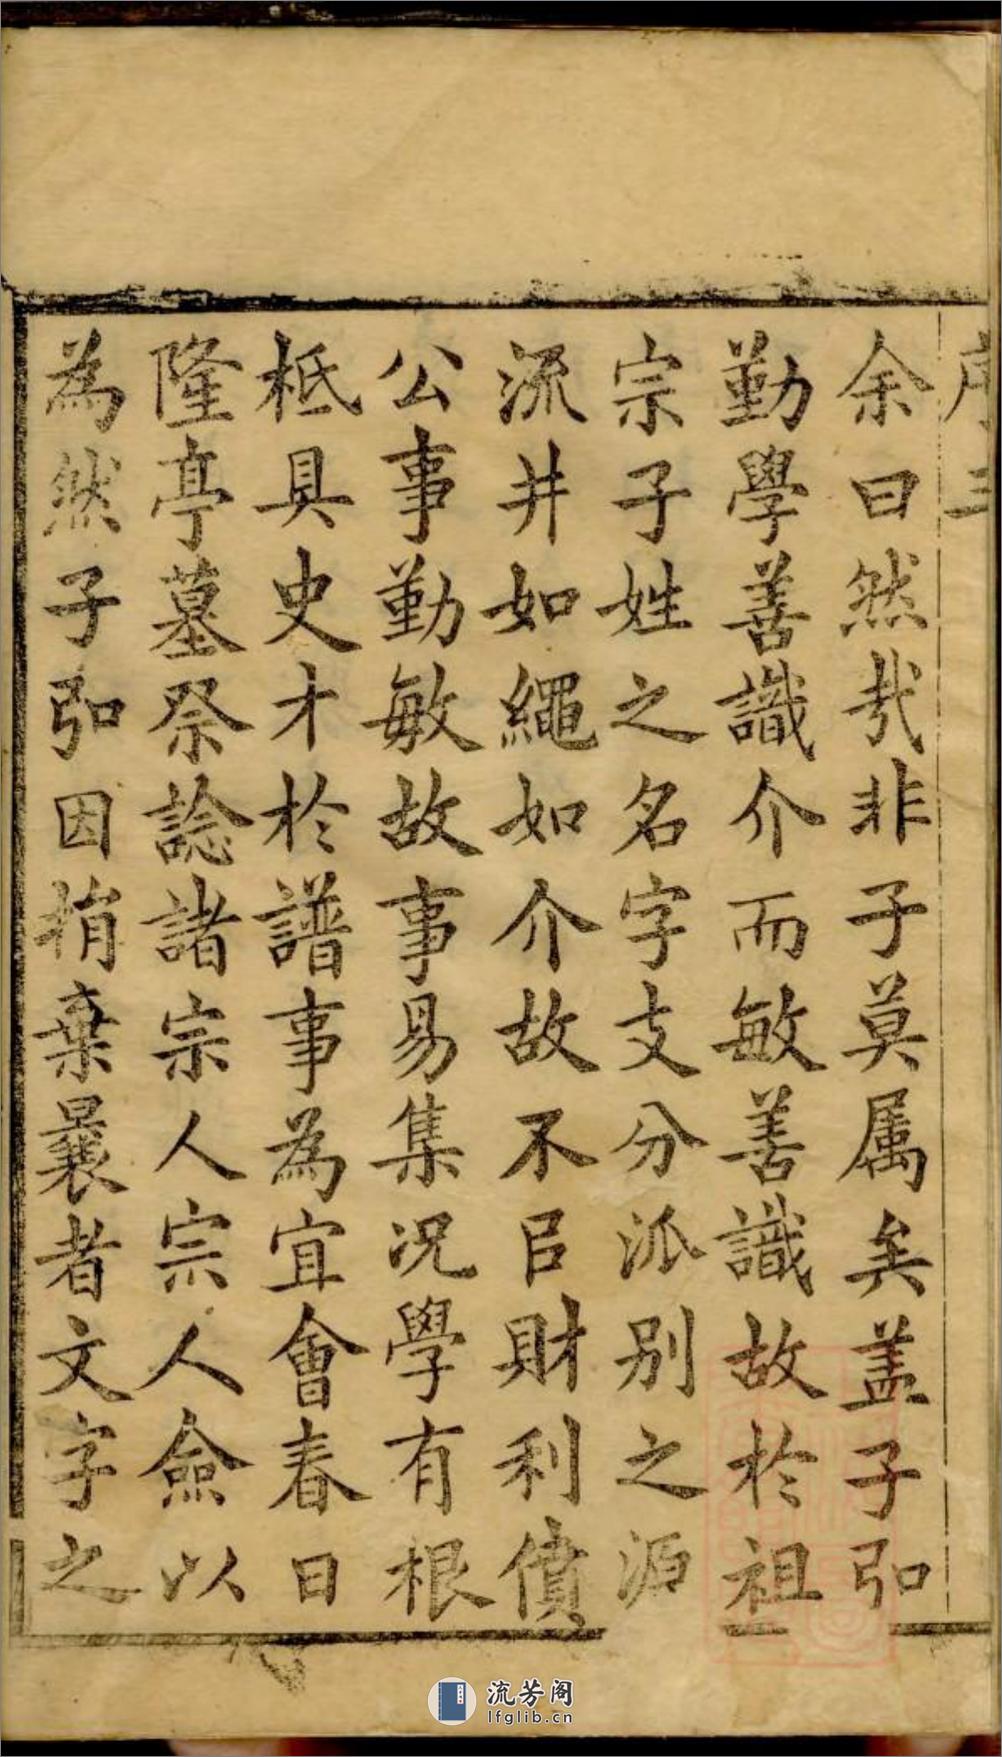 序三
余曰然哉非子莫属矣盖子弘
勤學善識介而敏善識故於祖
宗子姓之名字支分派别之源
流井如繩如介故不㠯財利僨
公事勤敏故事易集况學有根
柢具史才於譜事為宜會春日
隆亭墓祭諗諸宗人宗人僉以
為然子弘因捎棄曩者文字之
流芳阁
lfglib.cn